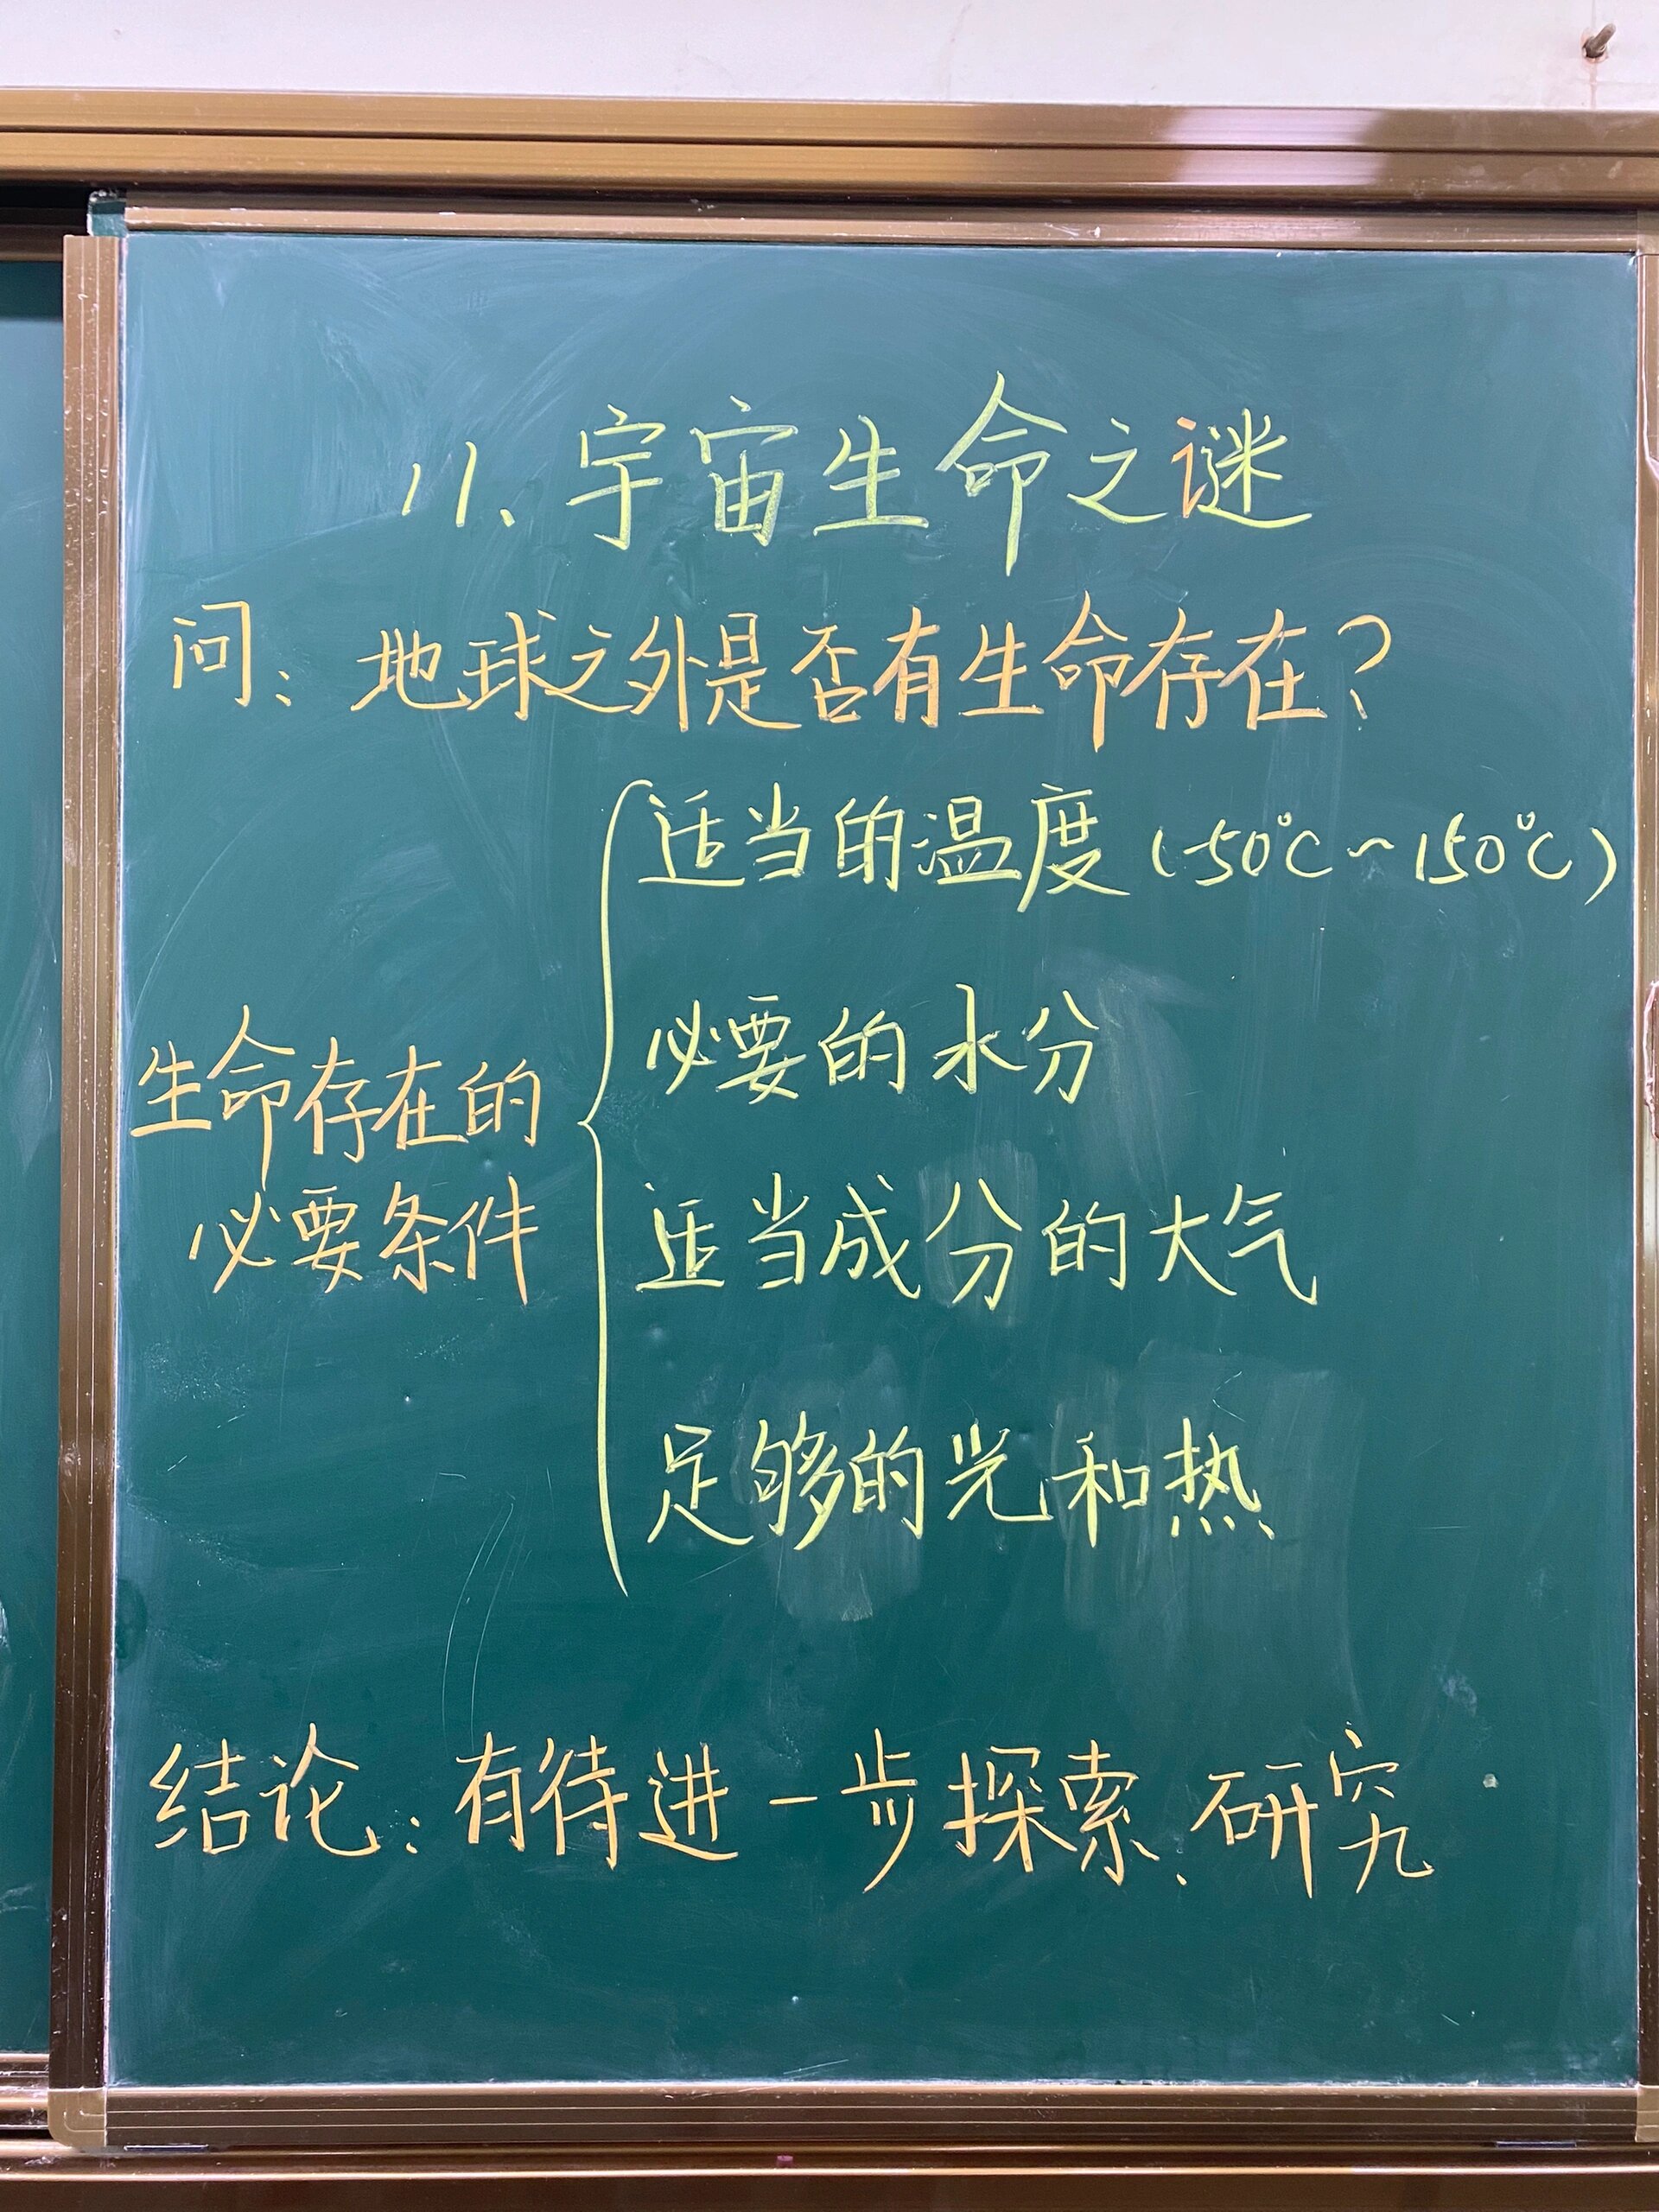 11、宇宙生命之谜
问：地球之外是否有生命存在？
适当的温度（-50℃～150℃）
必要的水分
生命存在的
必要条件
适当成分的大气
足够的光和热
结论：有待进一步探索、研究